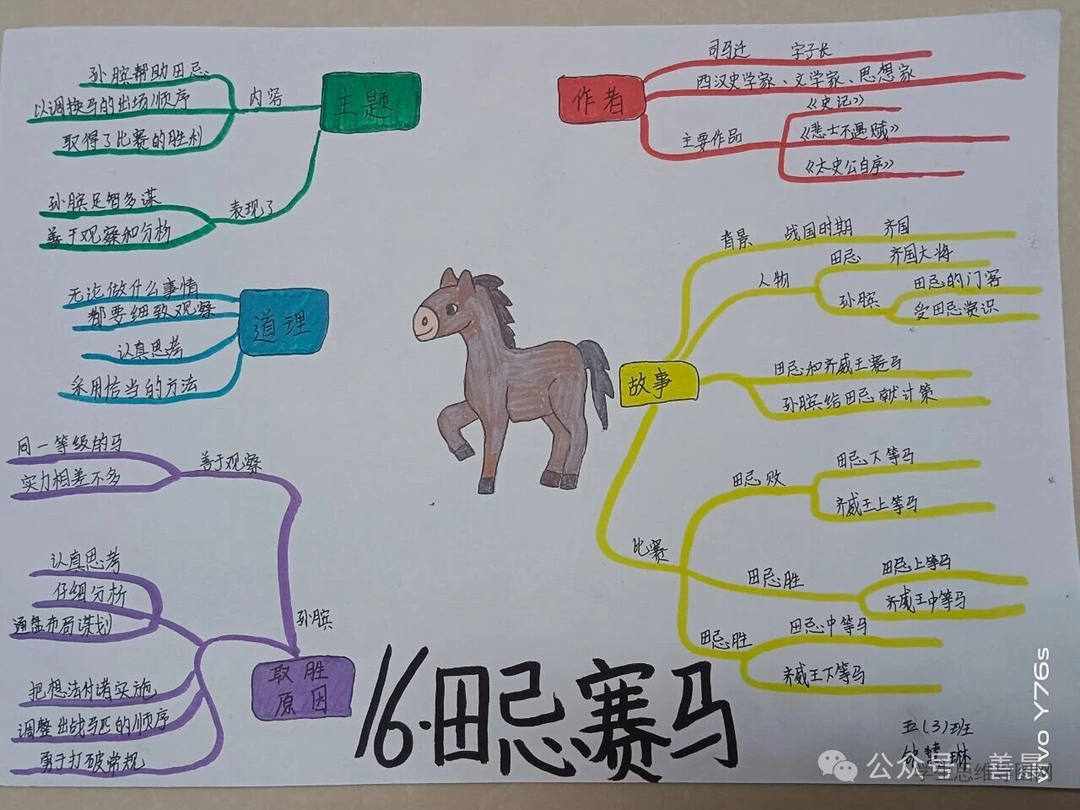 主题
内容
孙膑帮助田忌
以调换马的出场顺序
取得了比赛的胜利
表现了
孙膑足智多谋
善于观察和分析
作者
司马迁 字子长
西汉史学家、文学家、思想家
主要作品
《史记》
《悲士不遇赋》
《太史公自序》
道理
无论做什么事情
都要细致观察
认真思考
采用恰当的方法
故事
背景 战国时期 齐国
人物
田忌 齐国大将
孙膑
田忌的门客
受田忌赏识
田忌和齐威王赛马
孙膑给田忌献计策
比赛
田忌败
田忌下等马
齐威王上等马
田忌胜
田忌上等马
齐威王中等马
田忌胜
田忌中等马
齐威王下等马
取胜
原因
孙膑
善于观察
同一等级的马
实力相差不多
认真思考
仔细分析
通盘布局谋划
把想法付诸实施
调整出战马匹的顺序
勇于打破常规
16.田忌赛马
五(3)班
慧琳
公众号
学生思维导图网
vivo Y76s